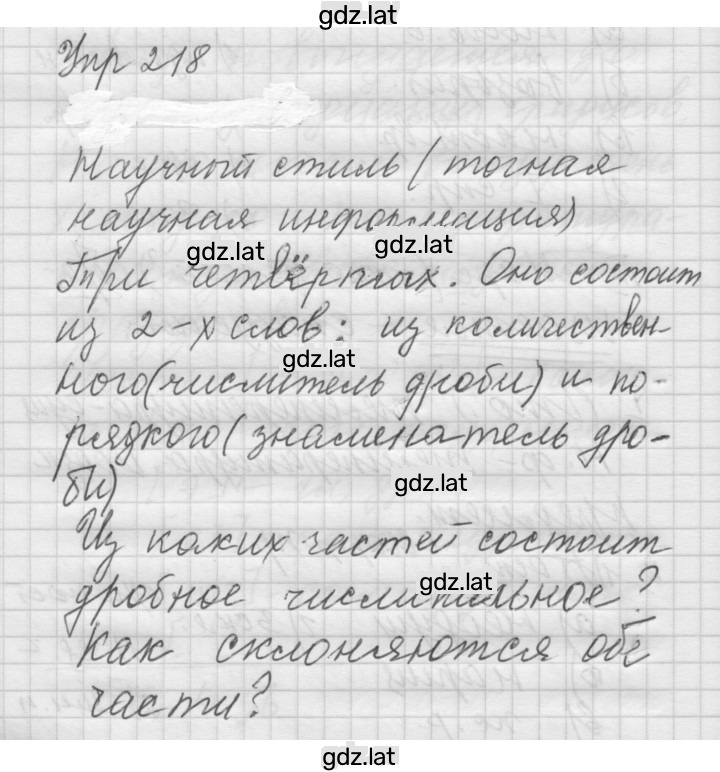 gdz.lat
Упр 218
Научный стиль (точная
научная информация)
gdz.lat
gdz.lat
Три четвёртых. Оно состоит
из 2-х слов: из количествен-
gdz.lat
ного(числитель дроби) и по-
рядкого(знаменатель дро-
би)
gdz.lat
Из каких частей состоит
gdz.lat
дробное числительное?
Как склоняются обе
части?
gdz.lat